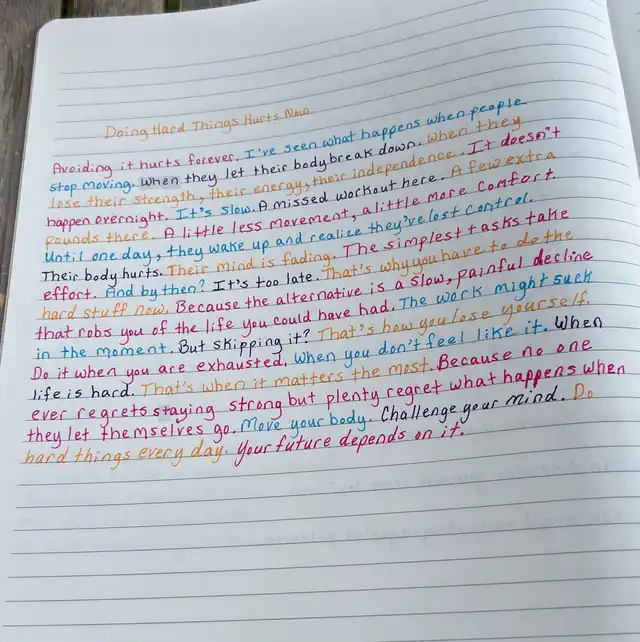 Doing Hard Things Hurts Now
Avoiding it hurts forever. I've seen what happens when people
stop moving. When they let their body break down. When they
lose their strength, their energy, their independence. It doesn't
happen overnight. It's slow. A missed workout here. A few extra
pounds there. A little less movement, a little more comfort
Until one day, they wake up and realize they've lost control.
Their body hurts. Their mind is fading. The simplest tasks take
effort. And by then? It's too late. That's why you have to do the
hard stuff now. Because the alternative is a slow, painful decline
that robs you of the life you could have had. The work might suck
in the moment. But skipping it? That's how you lose yourself.
Do it when you are exhausted, when you don't feel like it. When
life is hard. That's when it matters the most. Because no one
ever regrets staying strong but plenty regret what happens when
they let themselves go. Move your body. Challenge your mind. Do
hard things every day. Your future depends on it.